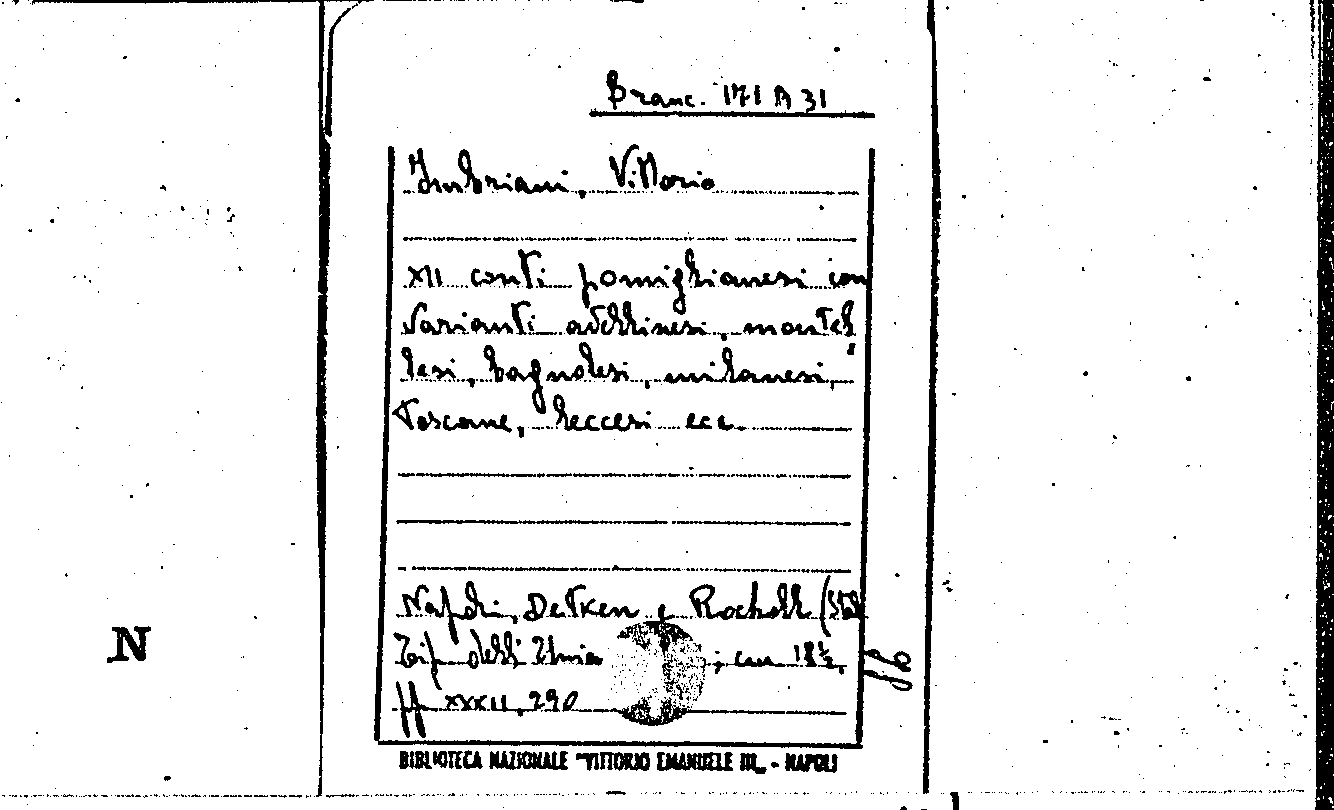 Branc. 171 A 31
Imbriani, Vittorio
XII conti pomiglianesi con
varianti avellinesi, montel
lesi, bagnolesi, milanesi,
toscane, leccesi ecc.
Napoli, Detken e Rocholl (Stab
Tip. dell'Unio ; cm 18½,
pp XXXII, 290
N
BIBLIOTECA NAZIONALE "VITTORIO EMANUELE III„ - NAPOLI